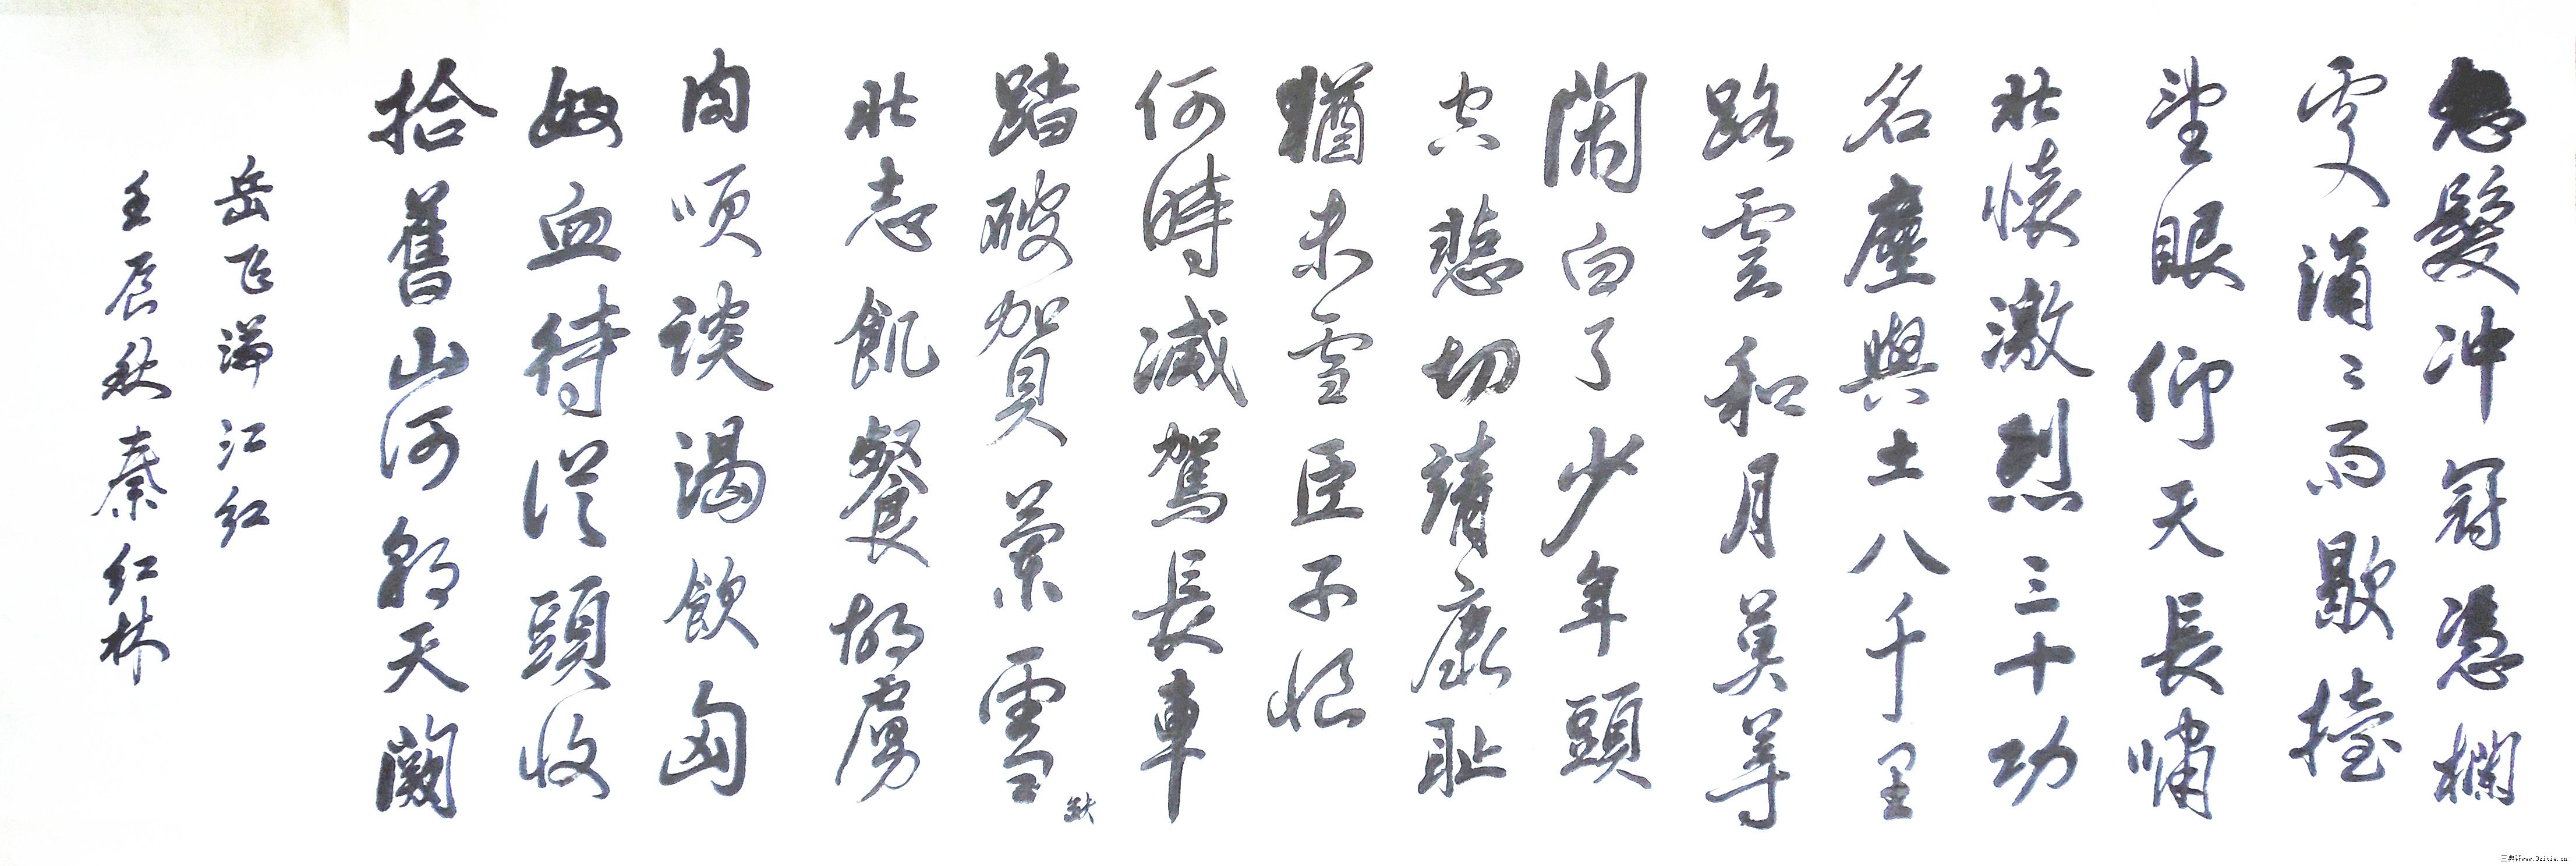 怒髮冲冠憑欄
處瀟〻雨歇擡
望眼仰天長嘯
壯懷激烈三十功
名塵與土八千里
路雲和月莫等
閑白了少年頭
空悲切靖康耻
猶未雪臣子恨
何時減駕長車
踏破賀蘭雪缺
壯志飢餐胡虜
肉笑談渴飲匈
奴血待從頭收
拾舊山河朝天闕
岳飞满江红
壬辰秋秦红林
www.3zitie.cn